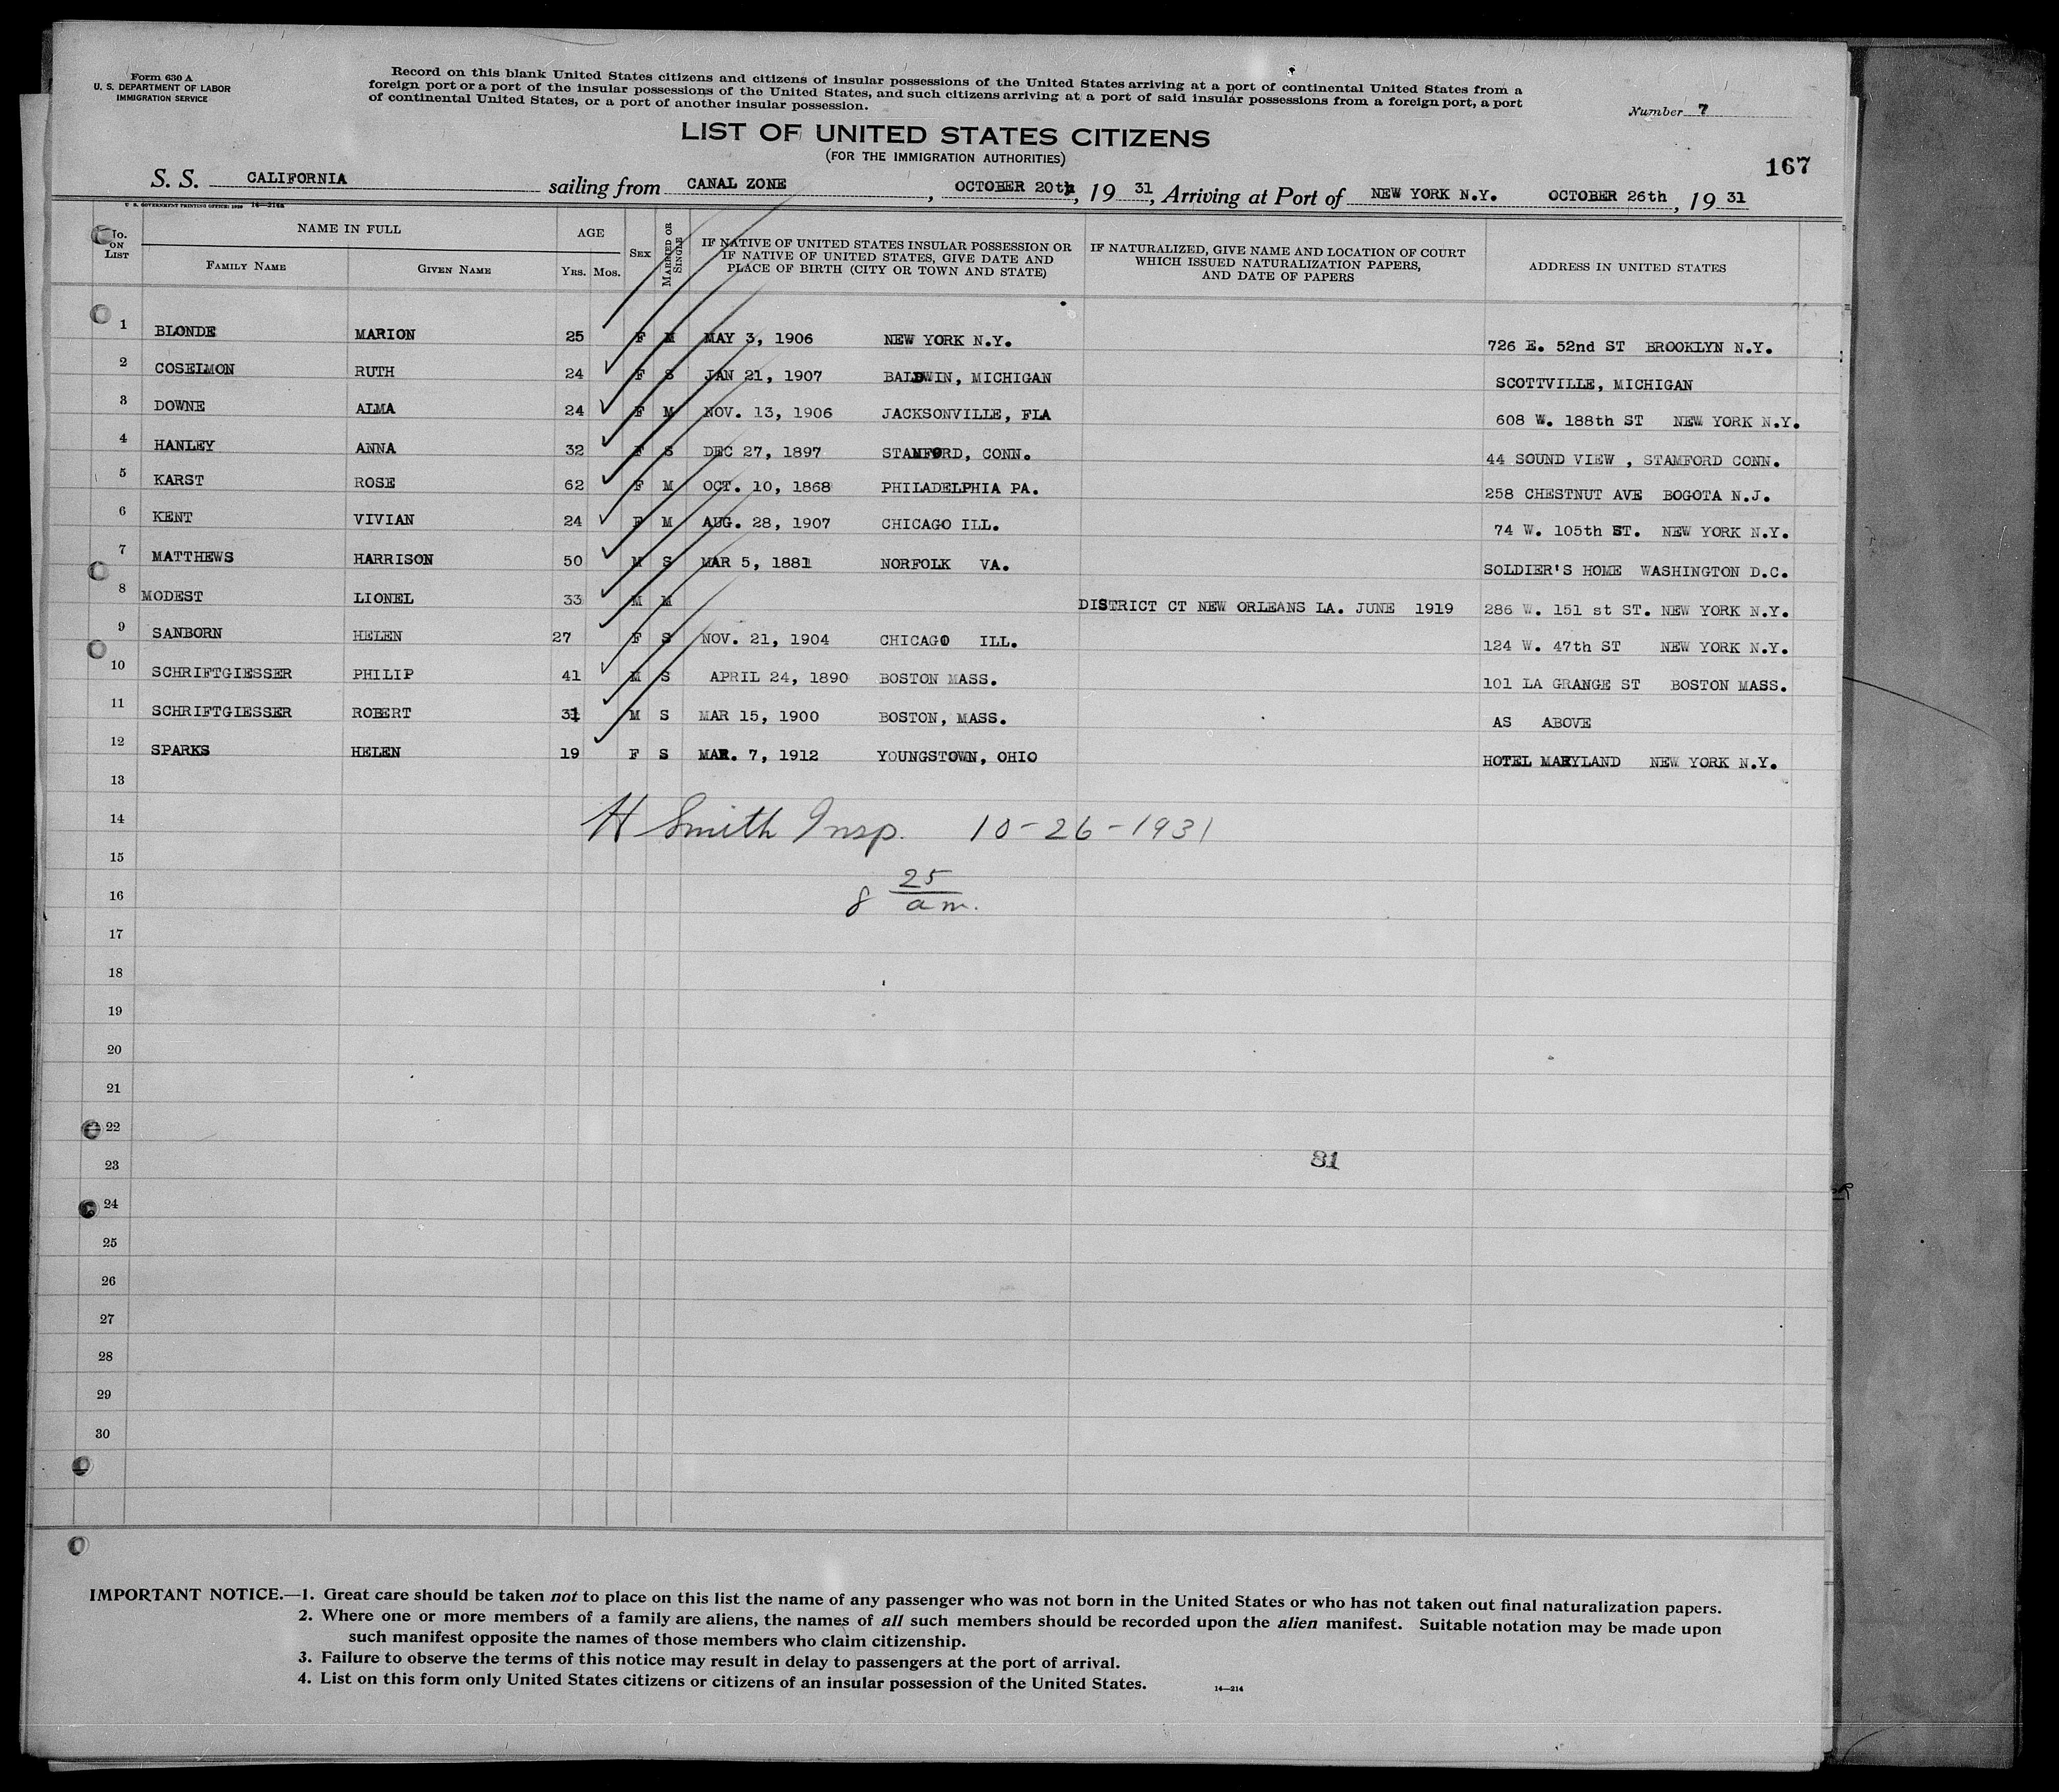 Form 630 A
U. S. DEPARTMENT OF LABOR
IMMIGRATION SERVICE
Record on this blank United States citizens and citizens of insular possessions of the United States arriving at a port of continental United States from a
foreign port or a port of the insular possessions of the United States, and such citizens arriving at a port of said insular possessions from a foreign port, a port
of continental United States, or a port of another insular possession.
Number 7
LIST OF UNITED STATES CITIZENS
(FOR THE IMMIGRATION AUTHORITIES)
167
S. S. CALIFORNIA sailing from CANAL ZONE, OCTOBER 20th, 19 31, Arriving at Port of NEW YORK N.Y. OCTOBER 26th, 19 31
U. S. GOVERNMENT PRINTING OFFICE: 1929 14-214a
No. ON LIST
NAME IN FULL
FAMILY NAME GIVEN NAME
AGE
YRS. MOS.
SEX
MARRIED OR SINGLE
IF NATIVE OF UNITED STATES INSULAR POSSESSION OR
IF NATIVE OF UNITED STATES, GIVE DATE AND
PLACE OF BIRTH (CITY OR TOWN AND STATE)
IF NATURALIZED, GIVE NAME AND LOCATION OF COURT
WHICH ISSUED NATURALIZATION PAPERS,
AND DATE OF PAPERS
ADDRESS IN UNITED STATES
1 BLONDE MARION 25 F M MAY 3, 1906 NEW YORK N.Y. 726 E. 52nd ST BROOKLYN N.Y.
2 COSELMON RUTH 24 F S JAN 21, 1907 BALDWIN, MICHIGAN SCOTTVILLE, MICHIGAN
3 DOWNE ALMA 24 F M NOV. 13, 1906 JACKSONVILLE, FLA 608 W. 188th ST NEW YORK N.Y.
4 HANLEY ANNA 32 F S DEC 27, 1897 STAMFORD, CONN. 44 SOUND VIEW , STAMFORD CONN.
5 KARST ROSE 62 F M OCT. 10, 1868 PHILADELPHIA PA. 258 CHESTNUT AVE BOGOTA N.J.
6 KENT VIVIAN 24 F M AUG. 28, 1907 CHICAGO ILL. 74 W. 105th ST. NEW YORK N.Y.
7 MATTHEWS HARRISON 50 M S MAR 5, 1881 NORFOLK VA. SOLDIER'S HOME WASHINGTON D.C.
8 MODEST LIONEL 33 M M DISTRICT CT NEW ORLEANS LA. JUNE 1919 286 W. 151 st ST. NEW YORK N.Y.
9 SANBORN HELEN 27 F S NOV. 21, 1904 CHICAGO ILL. 124 W. 47th ST NEW YORK N.Y.
10 SCHRIFTGIESSER PHILIP 41 M S APRIL 24, 1890 BOSTON MASS. 101 LA GRANGE ST BOSTON MASS.
11 SCHRIFTGIESSER ROBERT 31 M S MAR 15, 1900 BOSTON, MASS. AS ABOVE
12 SPARKS HELEN 19 F S MAR. 7, 1912 YOUNGSTOWN, OHIO HOTEL MARYLAND NEW YORK N.Y.
13
14 H Smith Insp. 10-26-1931
15
16 8 25 am.
17
18
19
20
21
22
23 31
24
25
26
27
28
29
30
IMPORTANT NOTICE.—1. Great care should be taken not to place on this list the name of any passenger who was not born in the United States or who has not taken out final naturalization papers.
2. Where one or more members of a family are aliens, the names of all such members should be recorded upon the alien manifest. Suitable notation may be made upon
such manifest opposite the names of those members who claim citizenship.
3. Failure to observe the terms of this notice may result in delay to passengers at the port of arrival.
4. List on this form only United States citizens or citizens of an insular possession of the United States.
14—214